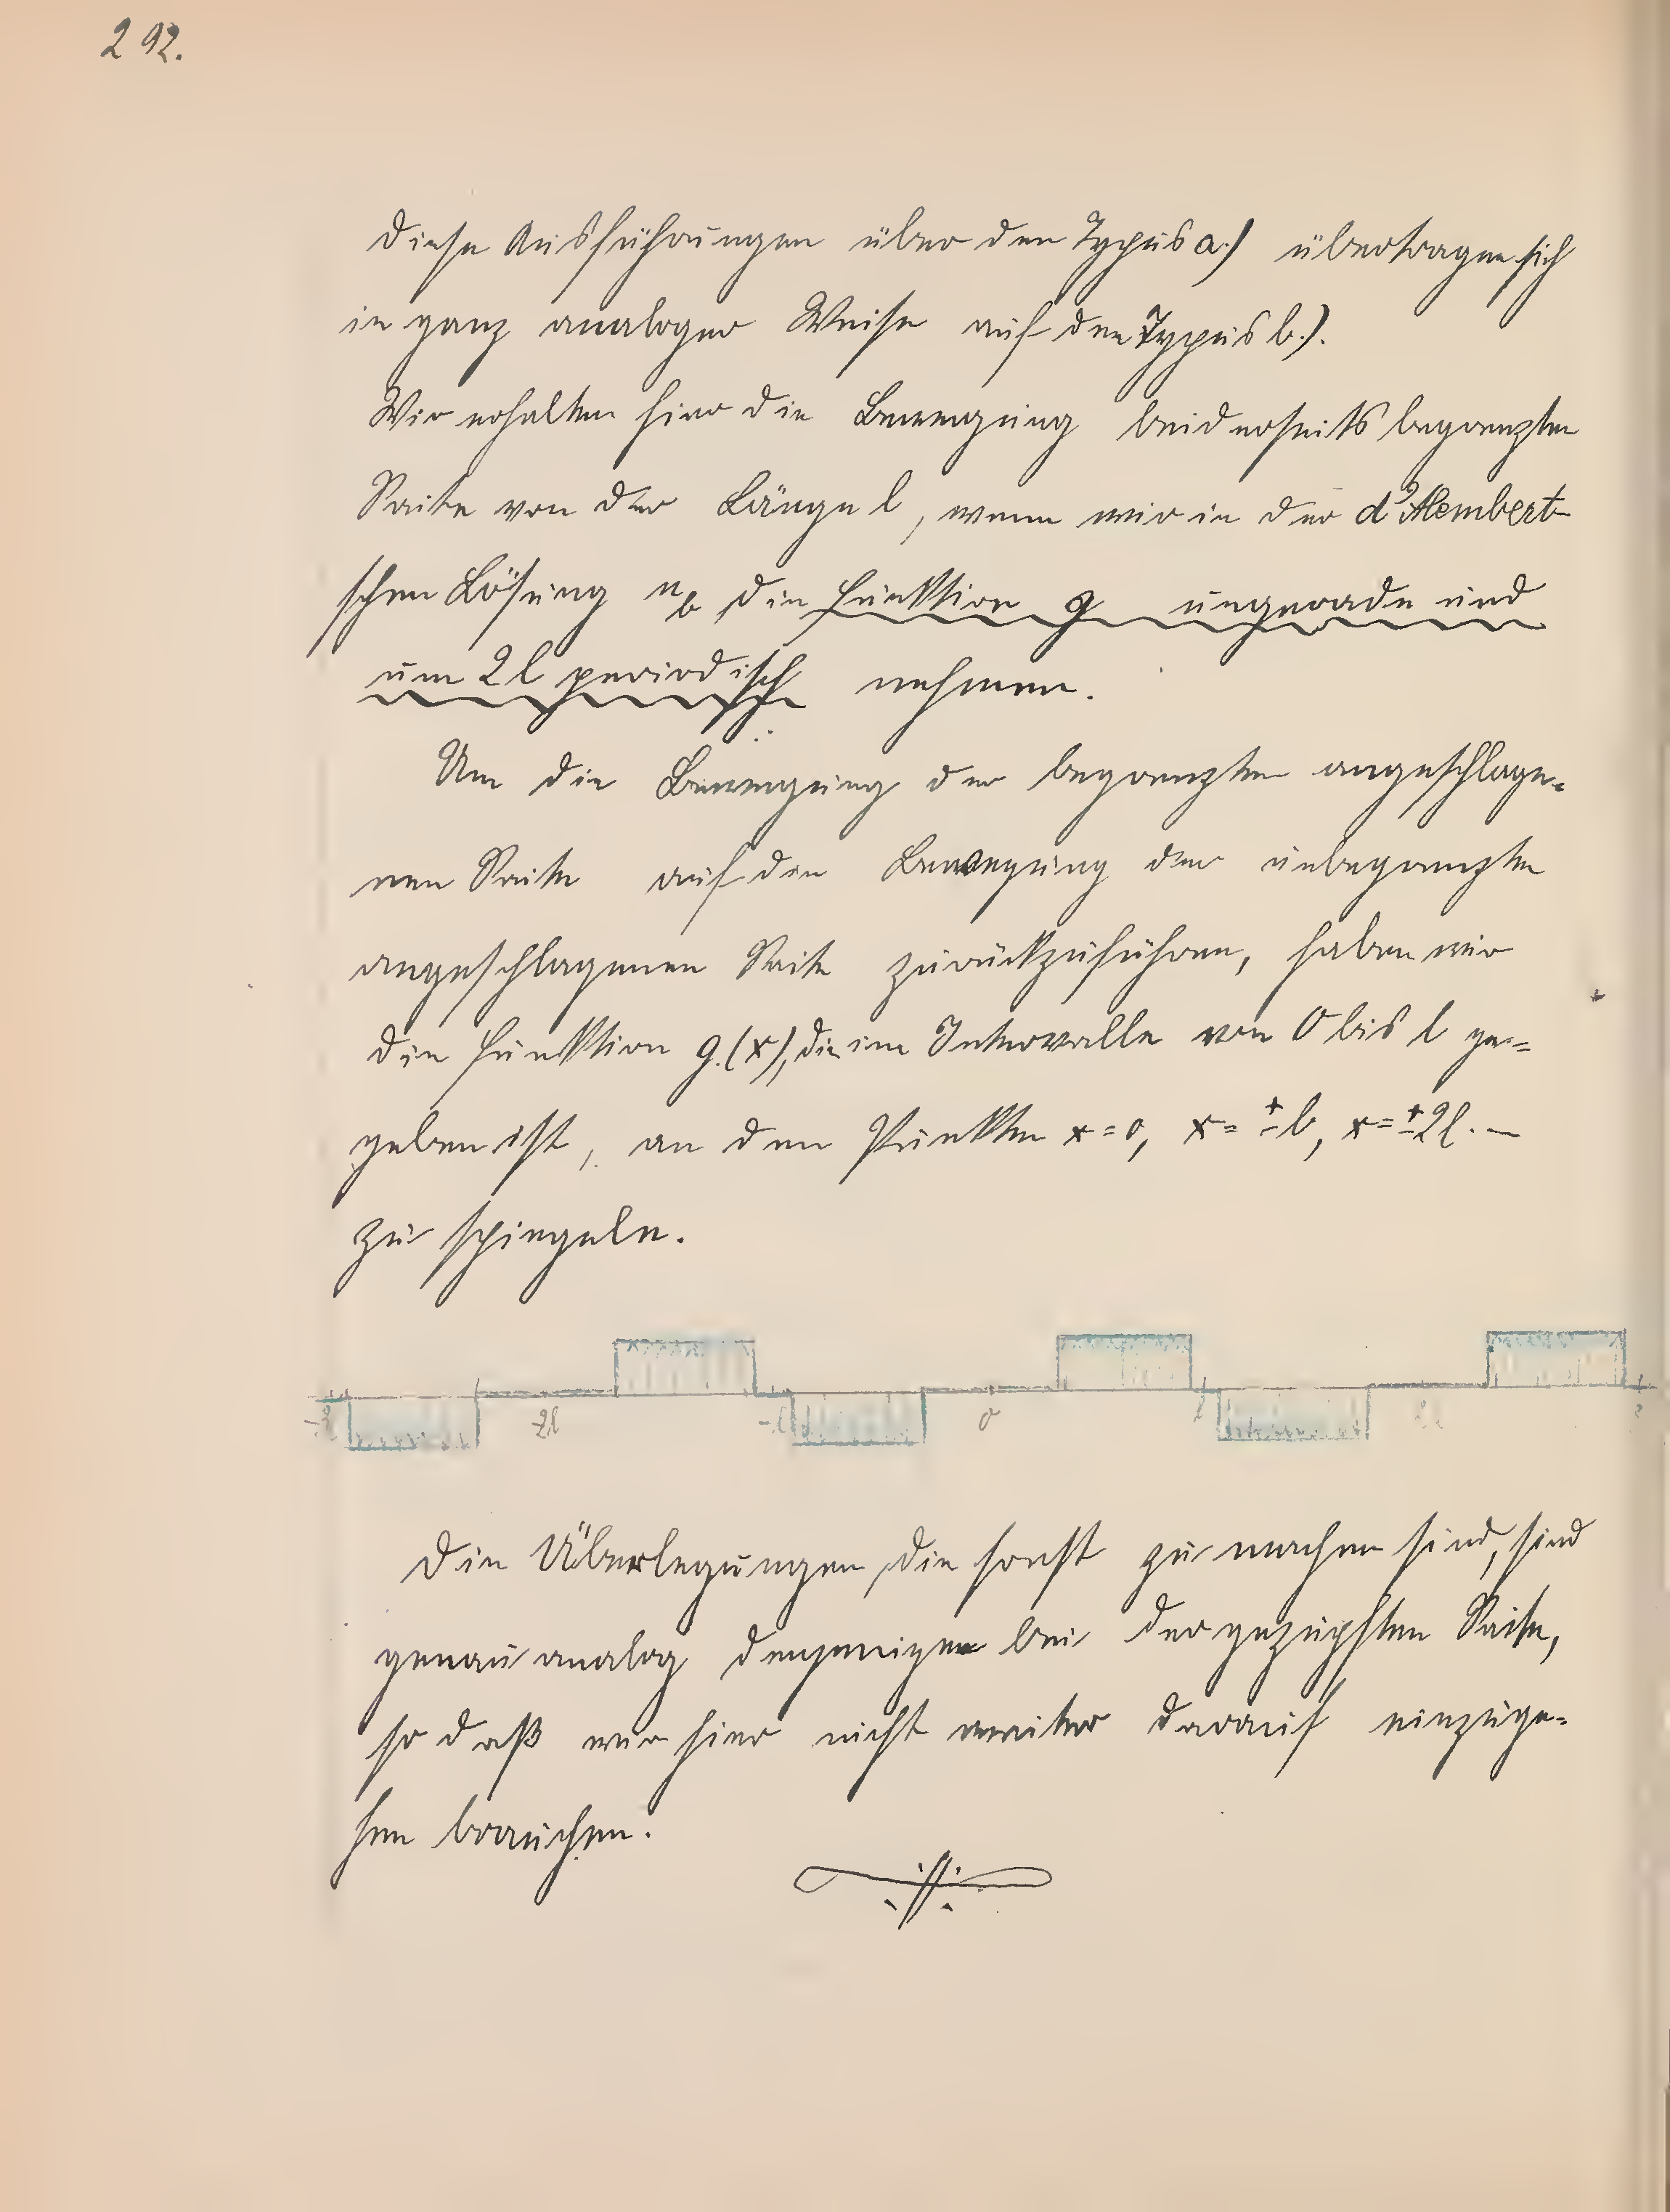 292.
Diese Ausführungen über den Typus a.) übertragen sich
in ganz analoger Weise auf den Typus b.).
Wir erhalten hier die Bewegung beiderseits begrenzten
Saite von der Länge l, wenn wir in der d'Alembert-
schen Lösung u_b die Funktion g ungerade und
um 2l periodisch nehmen.
Um die Bewegung der begrenzten angeschlage-
nen Saite auf die Bewegung der unbegrenzten
angeschlagenen Saite zurückzuführen, haben wir
die Funktion g.(x), die im Intervalle von 0 bis l ge-
geben ist, an den Punkten x=0, x=±l, x=±2l. —
zu spiegeln.
-2l -l 0 l
Die Überlegungen, die sonst zu machen sind, sind
genau analog denjenigen bei der gezupften Saite,
so daß wir hier nicht weiter darauf einzuge-
hen brauchen.